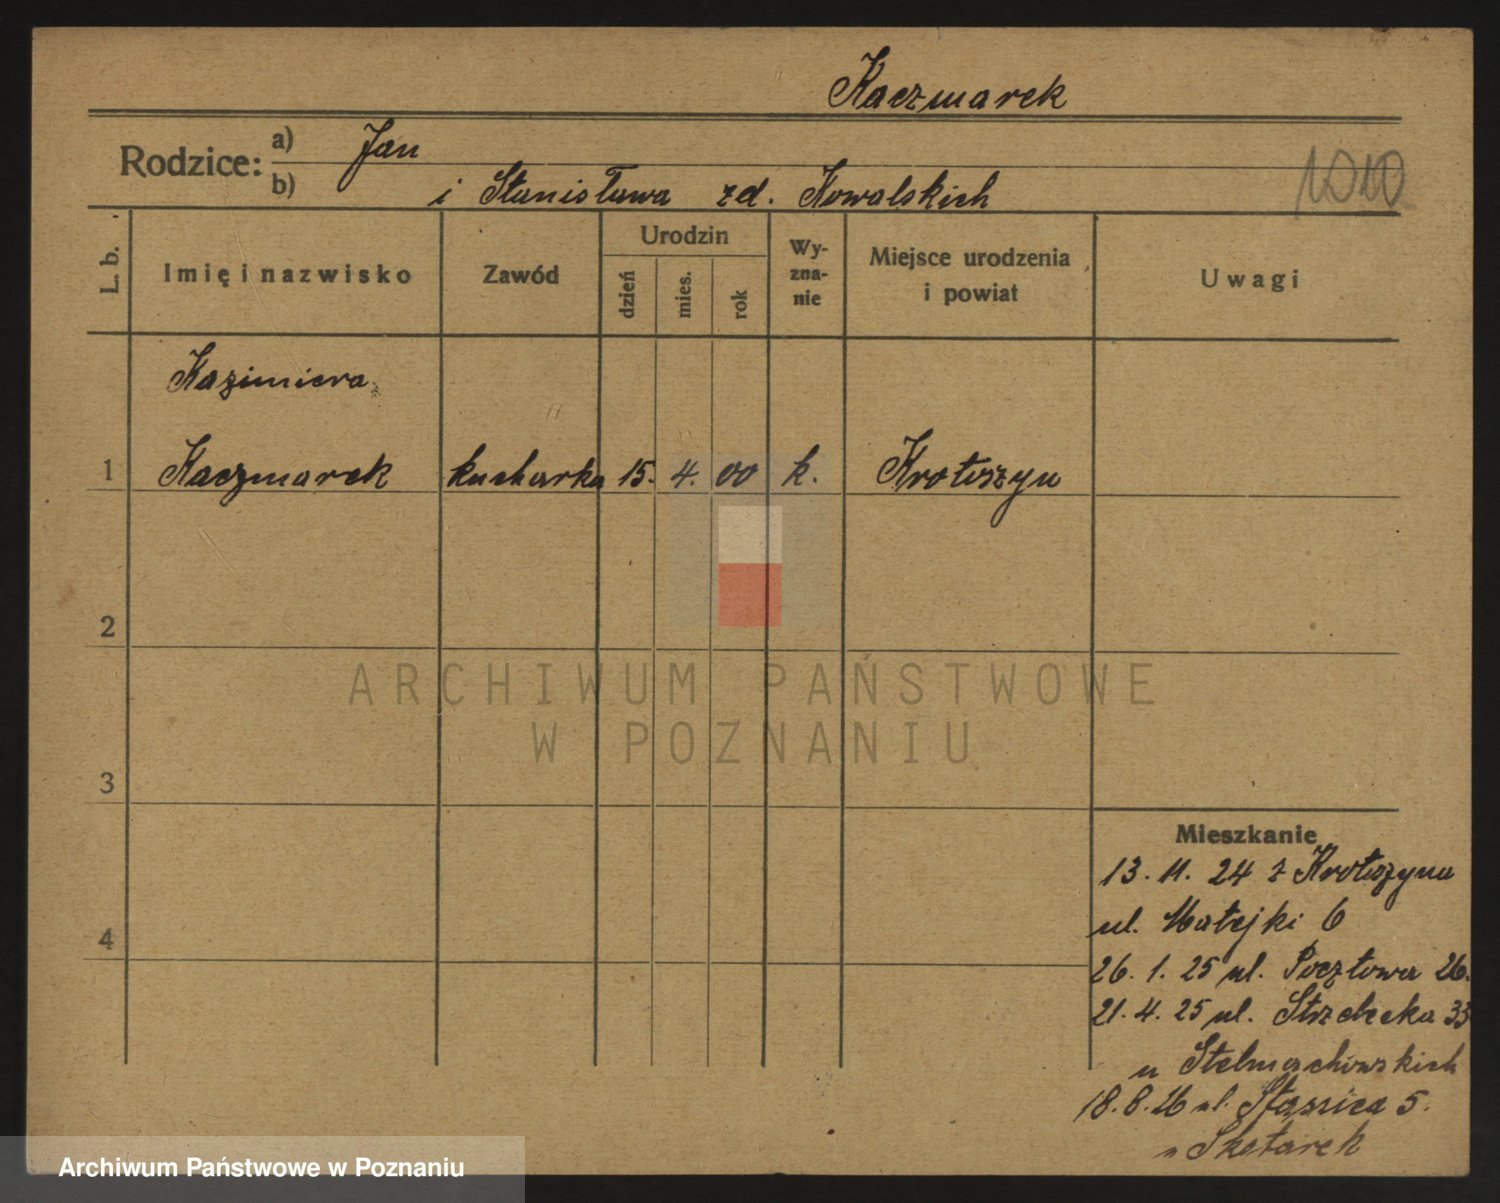 Kaczmarek
Rodzice: a) Jan
b) i Stanisława zd. Kowalskich
1010
L. b.
Imię i nazwisko
Zawód
Urodzin
dzień
mies.
rok
Wy-
zna-
nie
Miejsce urodzenia
i powiat
Uwagi
Kazimiera
1 Kaczmarek kucharka 15. 4. 00 k. Krotoszyn
2
3
4
Mieszkanie
13. 11. 24 z Krotoszyna
ul. Matejki 6
26. 1. 25 ul. Pocztowa 26.
21. 4. 25 ul. Strzelecka 33
u Stelmachowskich
18. 8. 26 ul. Staszica 5.
u
ARCHIWUM PAŃSTWOWE
W POZNANIU
Archiwum Państwowe w Poznaniu